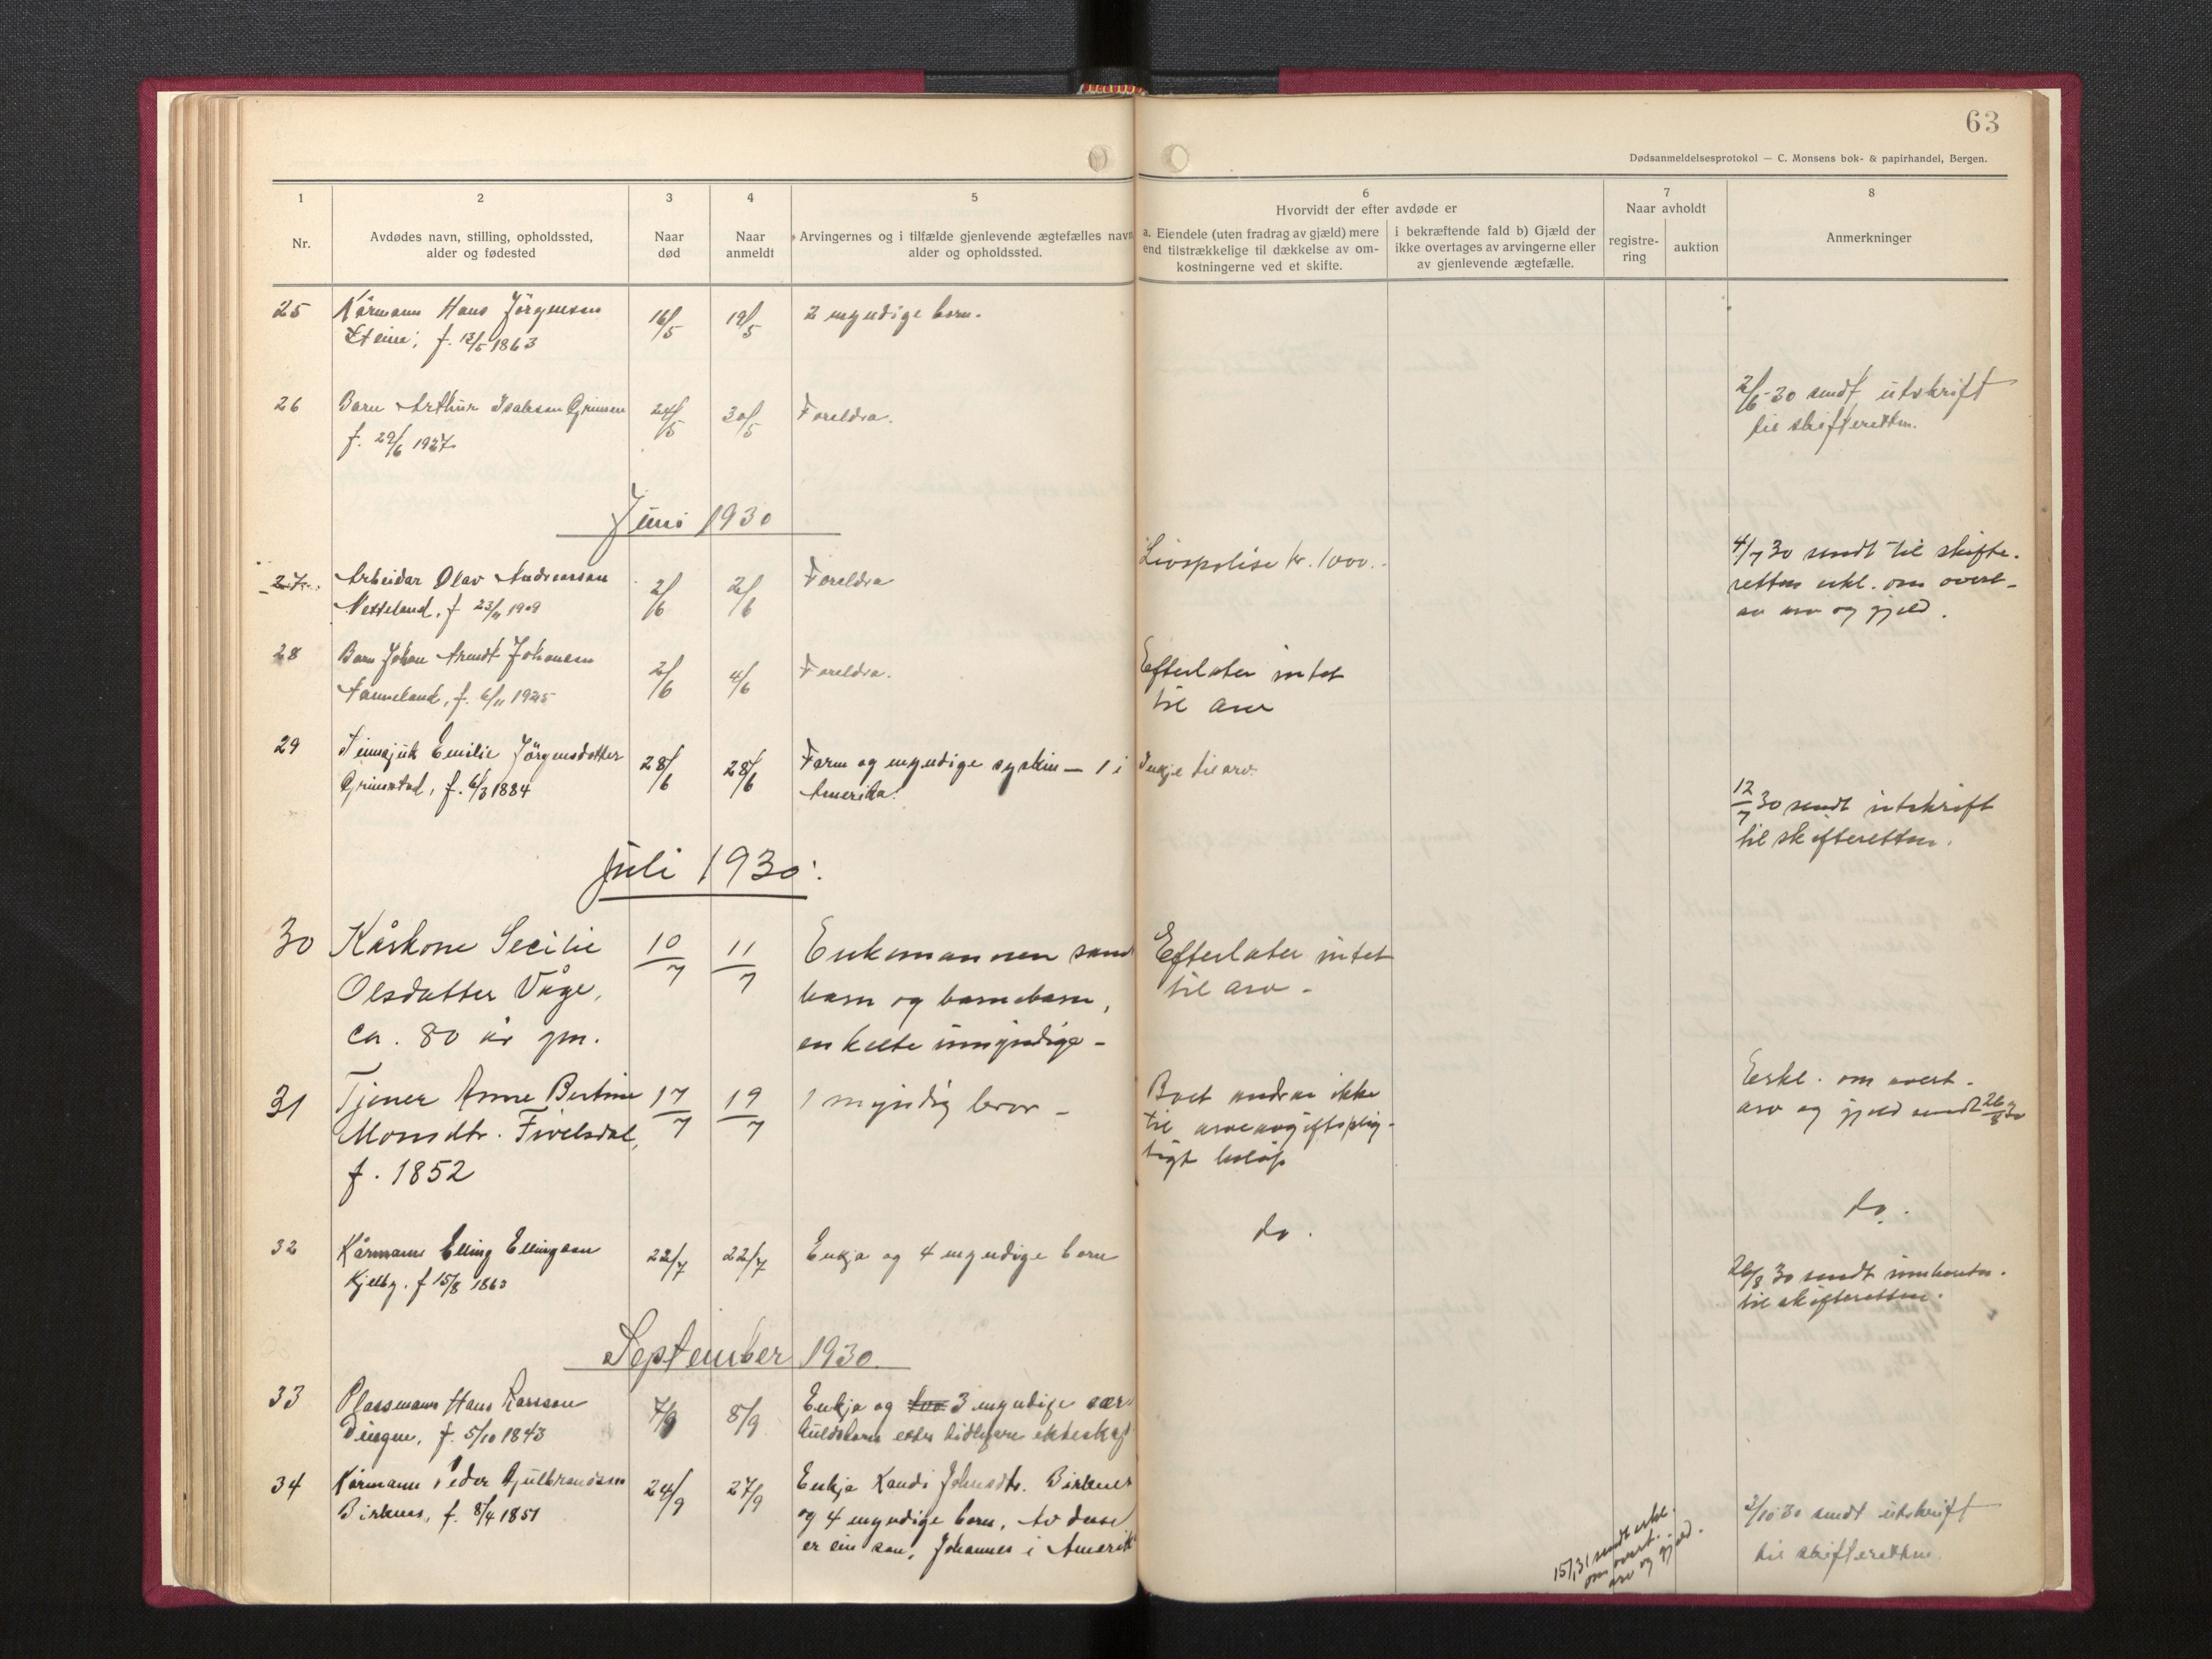 63
Dødsanmeldelsesprotokol — C. Monsens bok- & papirhandel, Bergen.
1 2 3 4 5 6 7 8
Nr.
Avdødes navn, stilling, opholdssted,
alder og fødested
Naar
død
Naar
anmeldt
Arvingernes og i tilfælde gjenlevende ægtefælles navn
alder og opholdssted.
Hvorvidt der efter avdøde er
a. Eiendele (uten fradrag av gjæld) mere
end tilstrækkelige til dækkelse av om-
kostningerne ved et skifte.
i bekræftende fald b) Gjæld der
ikke overtages av arvingerne eller
av gjenlevende ægtefælle.
Naar avholdt
registre-
ring
auktion
Anmerkninger
25 Kårmann Hans Jörgensen 16/5 19/5 2 myndige born.
f. 12/5 1863
26 Barn Arthur Isaksen 24/5 30/5 Foreldra. 2/6-30 sendt utskrift
f. 29/6 1927 til skifteretten.
Juni 1930
27 Arbeidar Olav Andreassen 2/6 2/6 Foreldra Livspolise kr. 1000. 4/7 30 sendt til skifte-
f. 23/11 1909 retten erkl. om overt.
av arv og gjeld.
28 Barn Johan Arndt Johansen 2/6 4/6 Foreldra. Efterlater intet
f. 6/11 1925 til arv
29 Emilie Jörgensdotter 28/6 28/6 Farm og myndige syskin — 1 i Inkje til arv.
Grimstad, f. 6/3 1884 Amerika.
12/7 30 sendt utskrift
til skifteretten.
Juli 1930.
30 Kårkone Secilie 10/7 11/7 Enkemannen samt Efterlater intet
Olsdatter Våge, barn og barnebarn, til arv -
ca. 80 år gm. enkelte umyndige -
31 Tjener Anne Bertine 17/7 19/7 1 myndig bror - Boet andrar ikke Erkl. om overt.
Monsdtr. Fivelsdal, til arveavgiftsplig- arv og gjeld sendt 26/8 30
f. 1852 tigt beløp
32 Kårmann Elling Ellingsen 22/7 22/7 Enkja og 4 myndige born do. do.
f 15/8 1863 26/8 30 sendt
til skifteretten.
September 1930.
33 Plassmann Hans Larsson 7/9 8/9 Enkja og too 3 myndige sær-
f. 5/10 1843 kuldsborn etter tidlegare ekteskap
34 Kårmann Peder Gulbrandsen 24/9 27/9 Enkja Johnsdtr. Birknes 2/10 30 sendt utskrift
Birknes, f. 8/4 1851 og 4 myndige born. Av desse til skifteretten.
er ein son, Johannes i Amerik
15/1 31 sendt erkl.
om overt.
arv og gjeld.